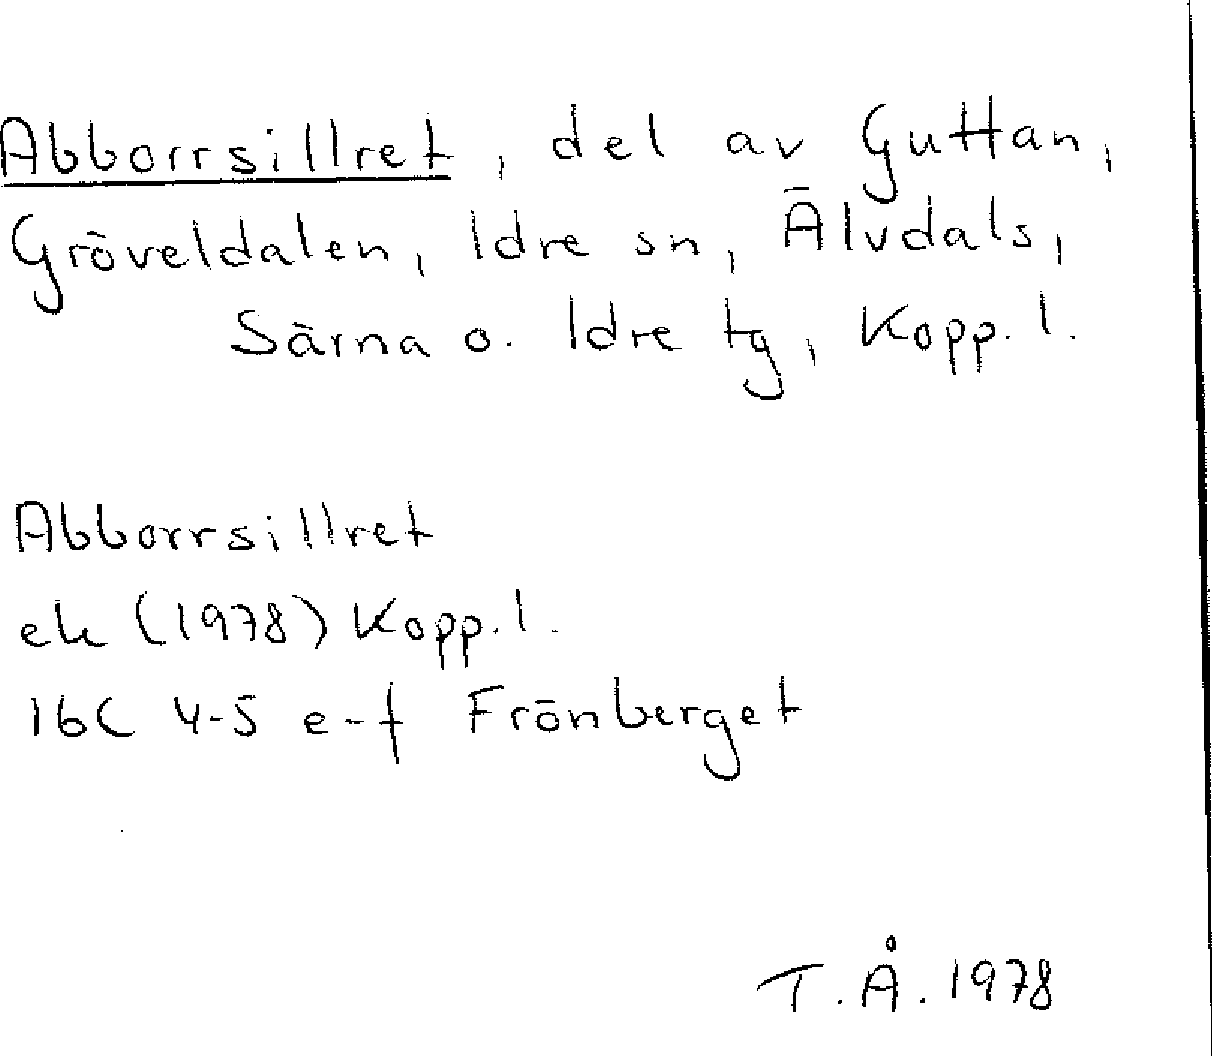 Abborrsillret, del av Guttan,
Gröveldalen, Idre sn, Älvdals,
Särna o. Idre tg, Kopp. l.
Abborrsillret
ek (1978) Kopp. l.
16C 4-5 e-f Frönberget
T. Å. 1978